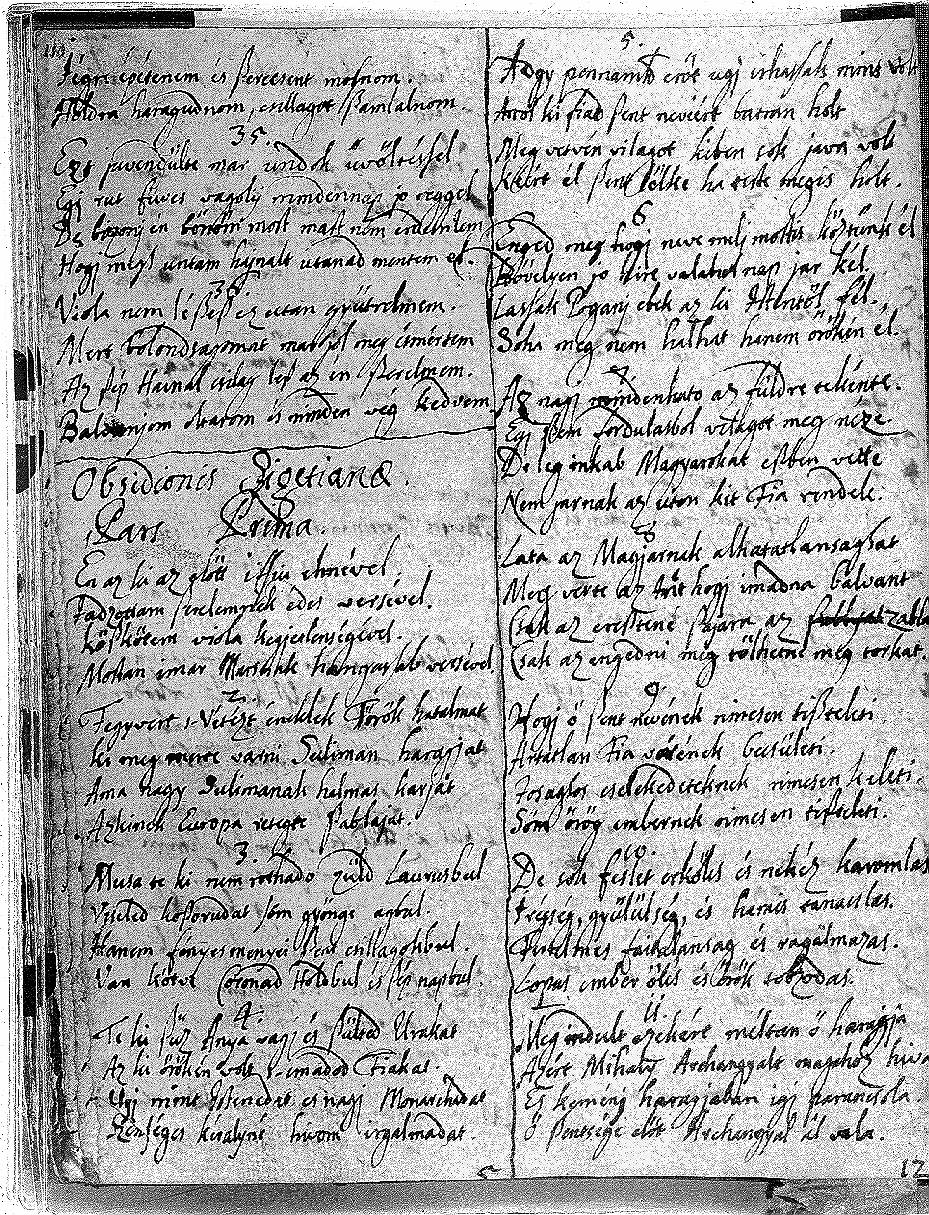 Égni épétenem és szerelment mosnom.
Holdra haragudnom, csillagot szamlalnom
35.
Ezt jwvendülte mar undok üvöltéssel
Egj rut füves vagolj mindennap jo reggel
De bizony én
Hogj mégh untam hajnalt utanad mentem el.
36
Viola nem lészesz ez utan gyütrelmem.
Mert bolondsagomat mar jol meg esmértem
Az szép Hainal csilag lesz az en szerelmem.
Balvanyom oltarom és minden vég kedvem
Obsidionis Zigetianæ.
Pars Prima.
En az ki az elött iffiu elmével
Jadzottam szerelemnek édes versével.
Küszködtem viola kegjetlenségével.
Mostan imar Marsnak hangassab versével
2.
Fegyvert s Vitézt éneklek Török hatalmat
Ki meg merte varni Suliman haragjat
Ama nagy Sulimanak hatmas karját
Azkinek Europa retegte szablajat.
3.
Musa te ki nem rothado züld Laurusbul
Viseled koszorudat sem gyönge agbul.
Hanem fényes menyei szent csillagokbul.
Van kötve coronad Holdbul és szép napbul.
4.
Te ki szüz Anya vagj és szülted Uradat
Az ki öröken volt s imadod Fiadat
Ugj mint Istenedet és nagj Monarchádat
Szentséges kiralyné hivom irgalmadat.
5.
Adgy pennamnak eröt ugj irhassak mint volt
Arol ki fiad szent neveért batran holt
Meg vetvén vilagot kiben sok java volt
Kiért él szent lölke ha teste megis holt.
6
Enged meg hogj neve mely mostis köztünk él
Bövelyen jo hire valahul nap jar kél.
Lassak Pogany ebek az ki Istentöl fél.
Soha meg nem halhat hanem öröken él.
7
Az nagj mindenhato az füldre tekénte.
Egj szem fordulasbol vilagot meg néze.
De leg inkab Magyarokat eszben vette
Nem jarnak az uton kit Fia rendele.
8
Lata az Magjarnak alhatatlansaghat
Meg vette az Urat hogj imadna balvant
Csak az eresztené szajara az zablat
Csak az engedni meg tölthetné meg torkat.
9
Hogj ö szent nevének nincsen tiszteleti
Artatlan Fia vérének becsületi.
Josaghos cselekedeteknek nincsen keleti.
Sem öreg embernek nincsen tiszteleti.
10
De sok feslet erkölcs és nehéz karomlas
Irégség, gyülülség, és hamis tanacslas.
Fertelmes fajtalansag és ragalmazas.
Lopas ember ölés és örök tobzodas.
11.
Meg indult ezekért méltan ö haragja
Azért Mihaly Archangyalt magahoz hiva
Es kemény haragjaban igj parancsola.
Ö szentsége elöt Archangyal al vala.
5
12